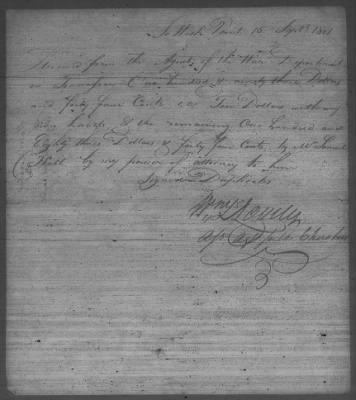 So West Point 15 Sept 1801
Received from the Agent of the War Department
in Tennessee One hundred & ninety three Dollars
and forty four Cents viz Ten Dollars with my
own hands & the remaining One hundred and
Eighty three Dollars & forty four Cents by Mr Samuel
by my power of attorney to him
Signed Duplicates
Wm L Lovely